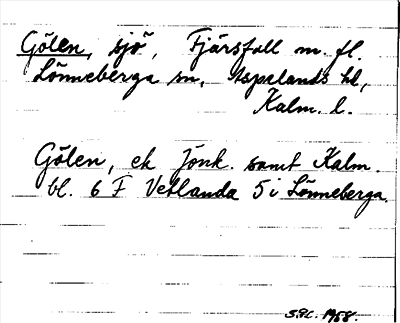 Gölen, sjö, Fjärsfall m. fl.
Lönneberga sn, Aspelands hd,
Kalm. l.
Gölen, ek Jönk. samt Kalm.
bl. 6 F Vetlanda 5 i Lönneberga.
1958.